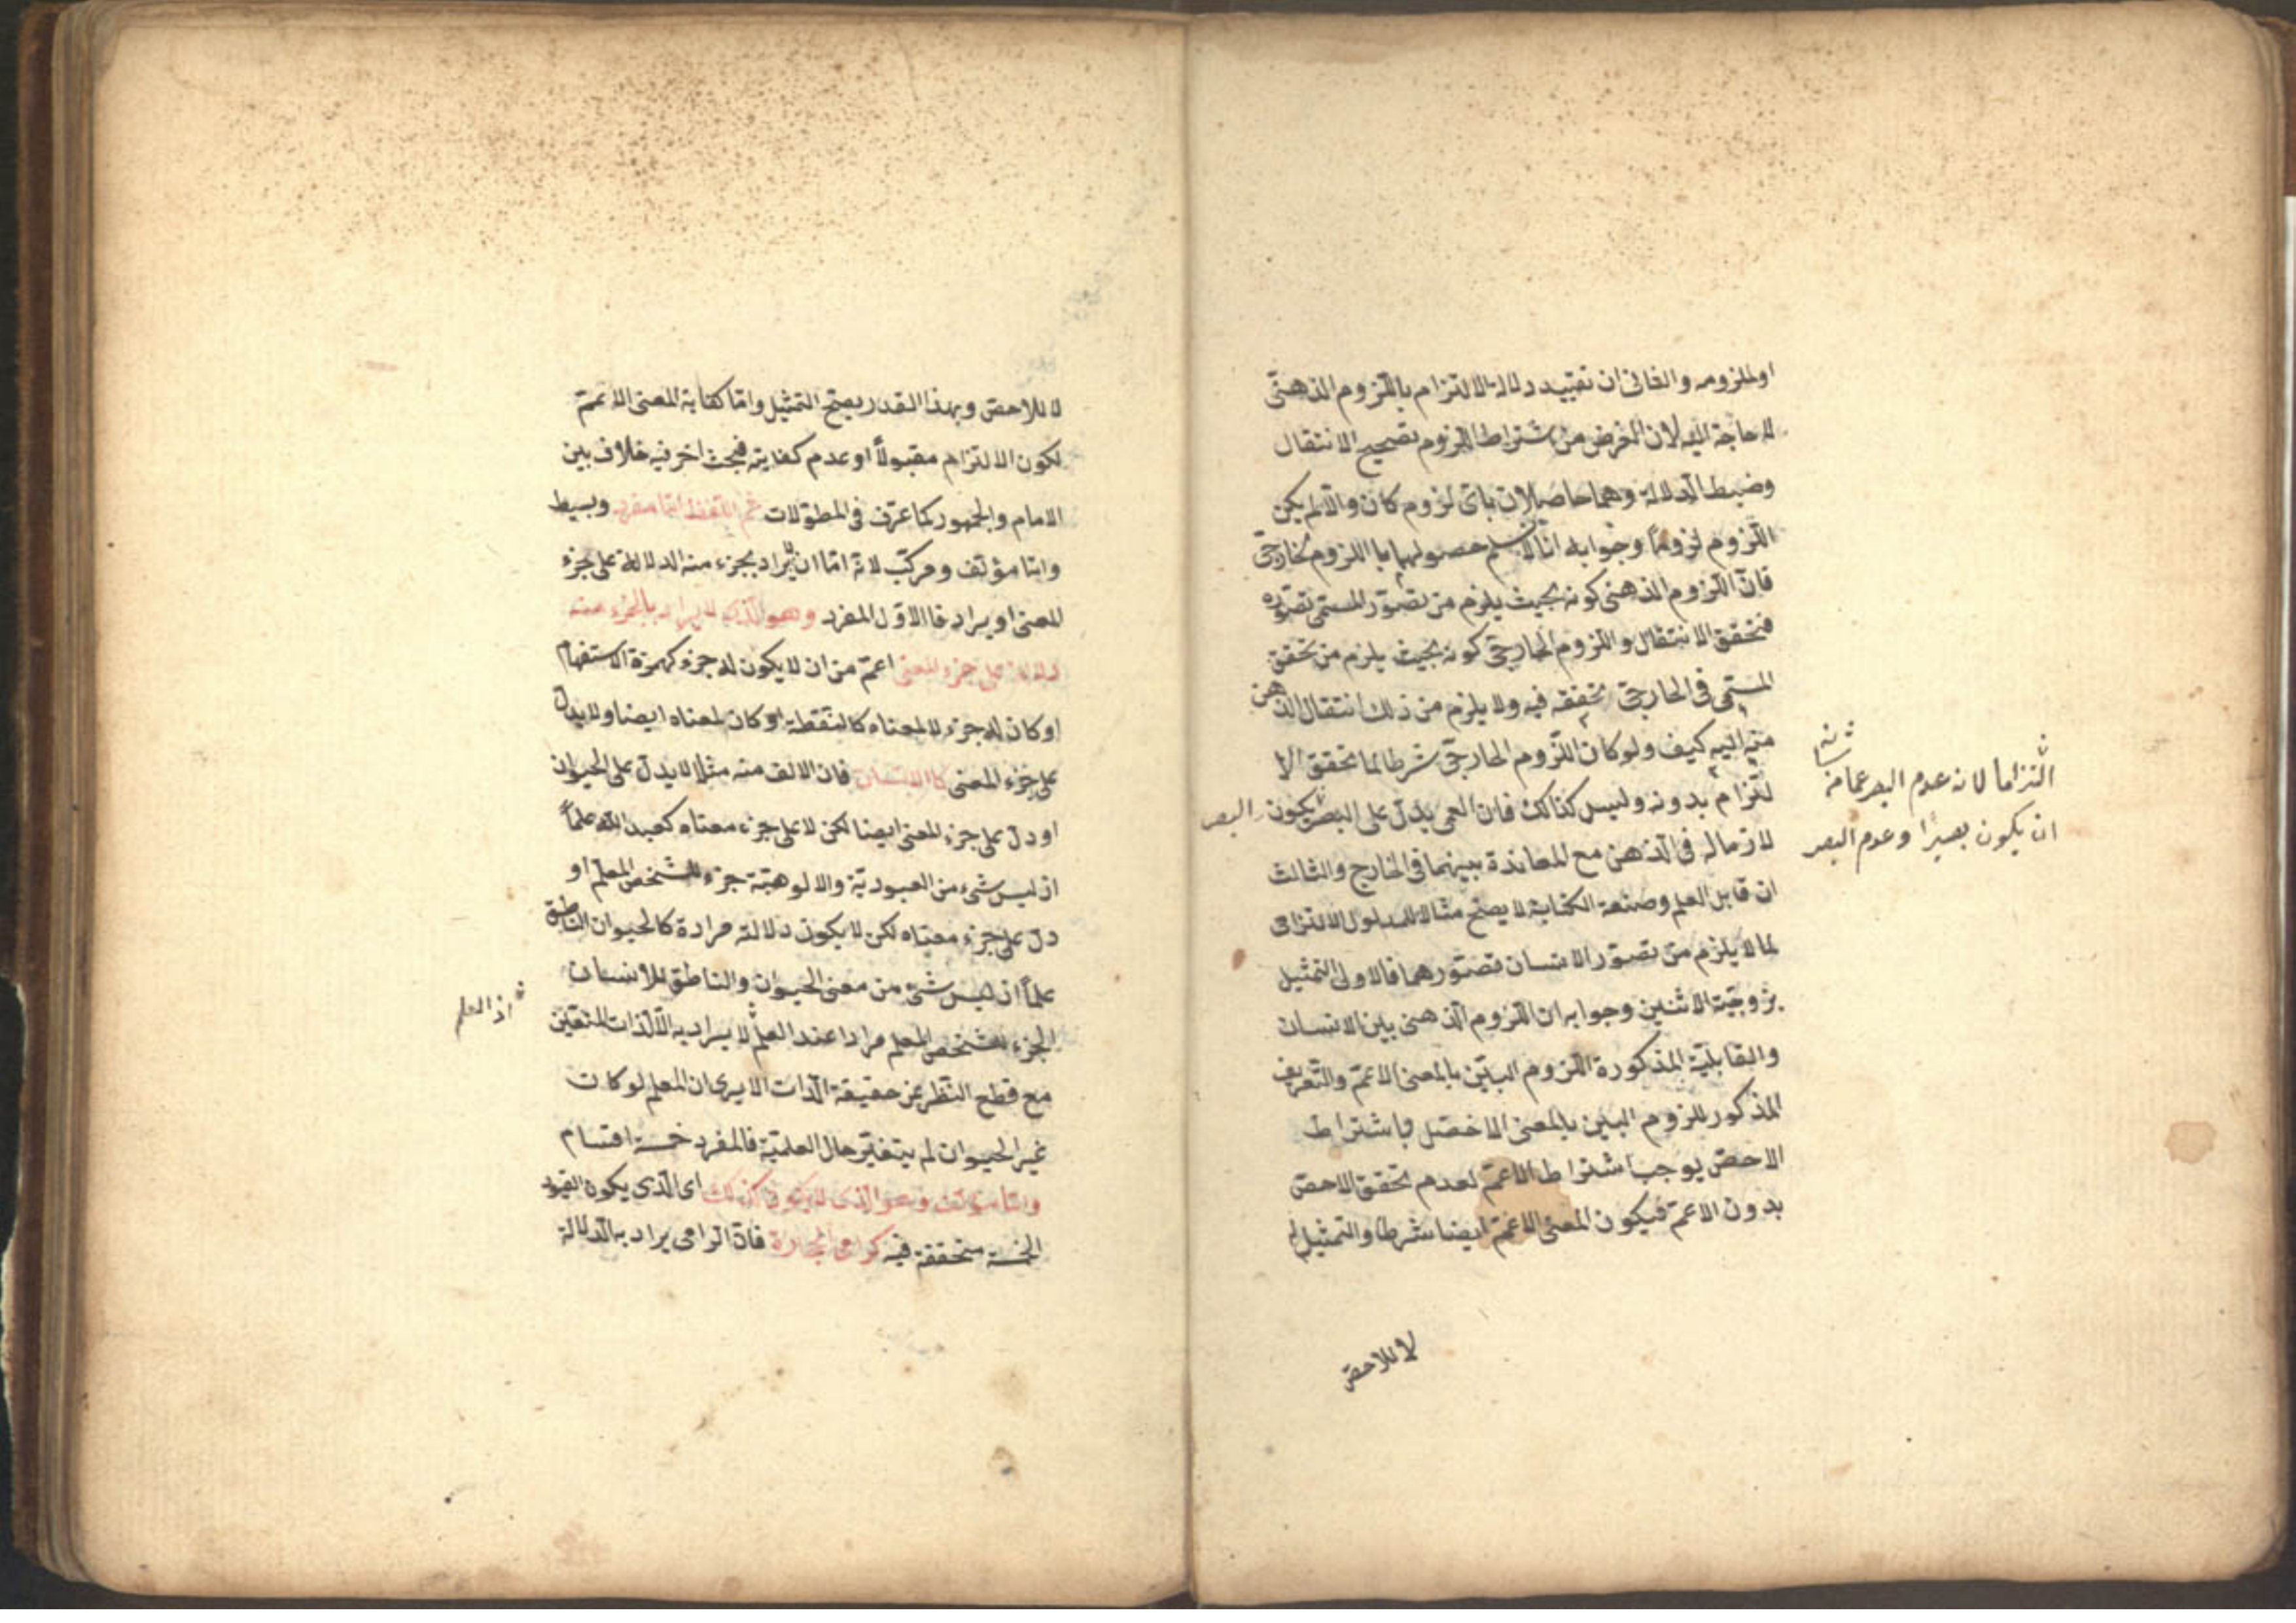 او لملزومه والثانى ان تقييد دلالة الالتزام باللزوم الذهنى
لا حاجة اليه لان الغرض من اشتراط اللزوم تصحيح الانتقال
وضبط الدلالة وهما حاصلان باى لزوم كان والا لم يكن
اللزوم لزوما وجوابه انا لا نسلم حصولهما باللزوم الخارجى
فان اللزوم الذهنى كونه بحيث يلزم من تصور المسمى تصوره
فتحقق الانتقال واللزوم الخارجى كونه بحيث يلزم من تحقق
المسمى فى الخارجى تحققه فيه ولا يلزم من ذلك انتقال الذهن
منه اليه كيف ولو كان اللزوم الخارجى شرطا لما تحقق الا
لتزام بدونه وليس كذالك فان العمى يدل على البصر يكون البصر
التزاما لانه عدم البصر عما من شانه
ان يكون بصيرا وعدم البصر
لازما له فى الذهن مع المعاندة بينهما فى الخارج والثالث
ان قابل العلم وصنعة الكتابة لا يصح مثالا للمدلول الالتزامى
لما لا يلزم من تصور الانسان تصورهما فالاولى التمثيل
بزوجية الاثنين وجوابه ان اللزوم الذهنى بين الانسان
والقابلية المذكورة اللزوم البين بالمعنى الاعم والتعريف
المذكور للزوم البين بالمعنى الاخص فاشتراط
الاخص يوجب اشتراط الاعم لعدم تحقق الاحص
بدون الاعم فيكون المعنى الاعم ايضا شرطا والتمثيل له
لا للاحص
لا للاحص وبهذا القدر يصح التمثيل واما كفاية المعنى الاعم
لكون الالتزام مقبولا او عدم كفايته فبحث اخر فيه خلاف بين
الامام والجمهور كما عرف فى المطولات ثم اللفظ اما مفرد وبسيط
واما مؤلف ومركب لانه اما ان لا يراد بجزء منه الدلالة على جزء
المعنى او يراد فالاول المفرد وهو الذى لا يراد بالجزء منه
دلالة على جزء المعنى اعم من ان لا يكون له جزء كهمزة الاستفهام
او كان له جزء لا لمعناه كالنقطة او كان لمعناه ايضا ولا يدل
على جزء المعنى كالانسان فان الالف منه مثلا لا يدل على الحيوان
او دل على جزء المعنى ايضا لكن لا على جزء معناه كعبد الله علما
اذ ليس شىء من العبودية والالوهية جزء للشخص المعلم او
دل على جزء معناه لكن لا يكون دلالته مرادة كالحيوان الناطق
علما اذ ليس شىء من معنى الحيوان والناطق للانسان
الجزء للشخص المعلم مرادا عند العلم لا يراد به الا الذات المتعين
اذ العلم
مع قطع النظر عن حقيقة الذات الا يرى ان المعلم لو كان
غير الحيوان لم يتغير حال العلمية فالمفرد خمسة اقسام
واما مؤلف وهو الذى لا يكون كذلك اى الذى يكون القيود
الخمسة متحققة فيه كرامى الحجارة فان الرامى يراد به الدلالة